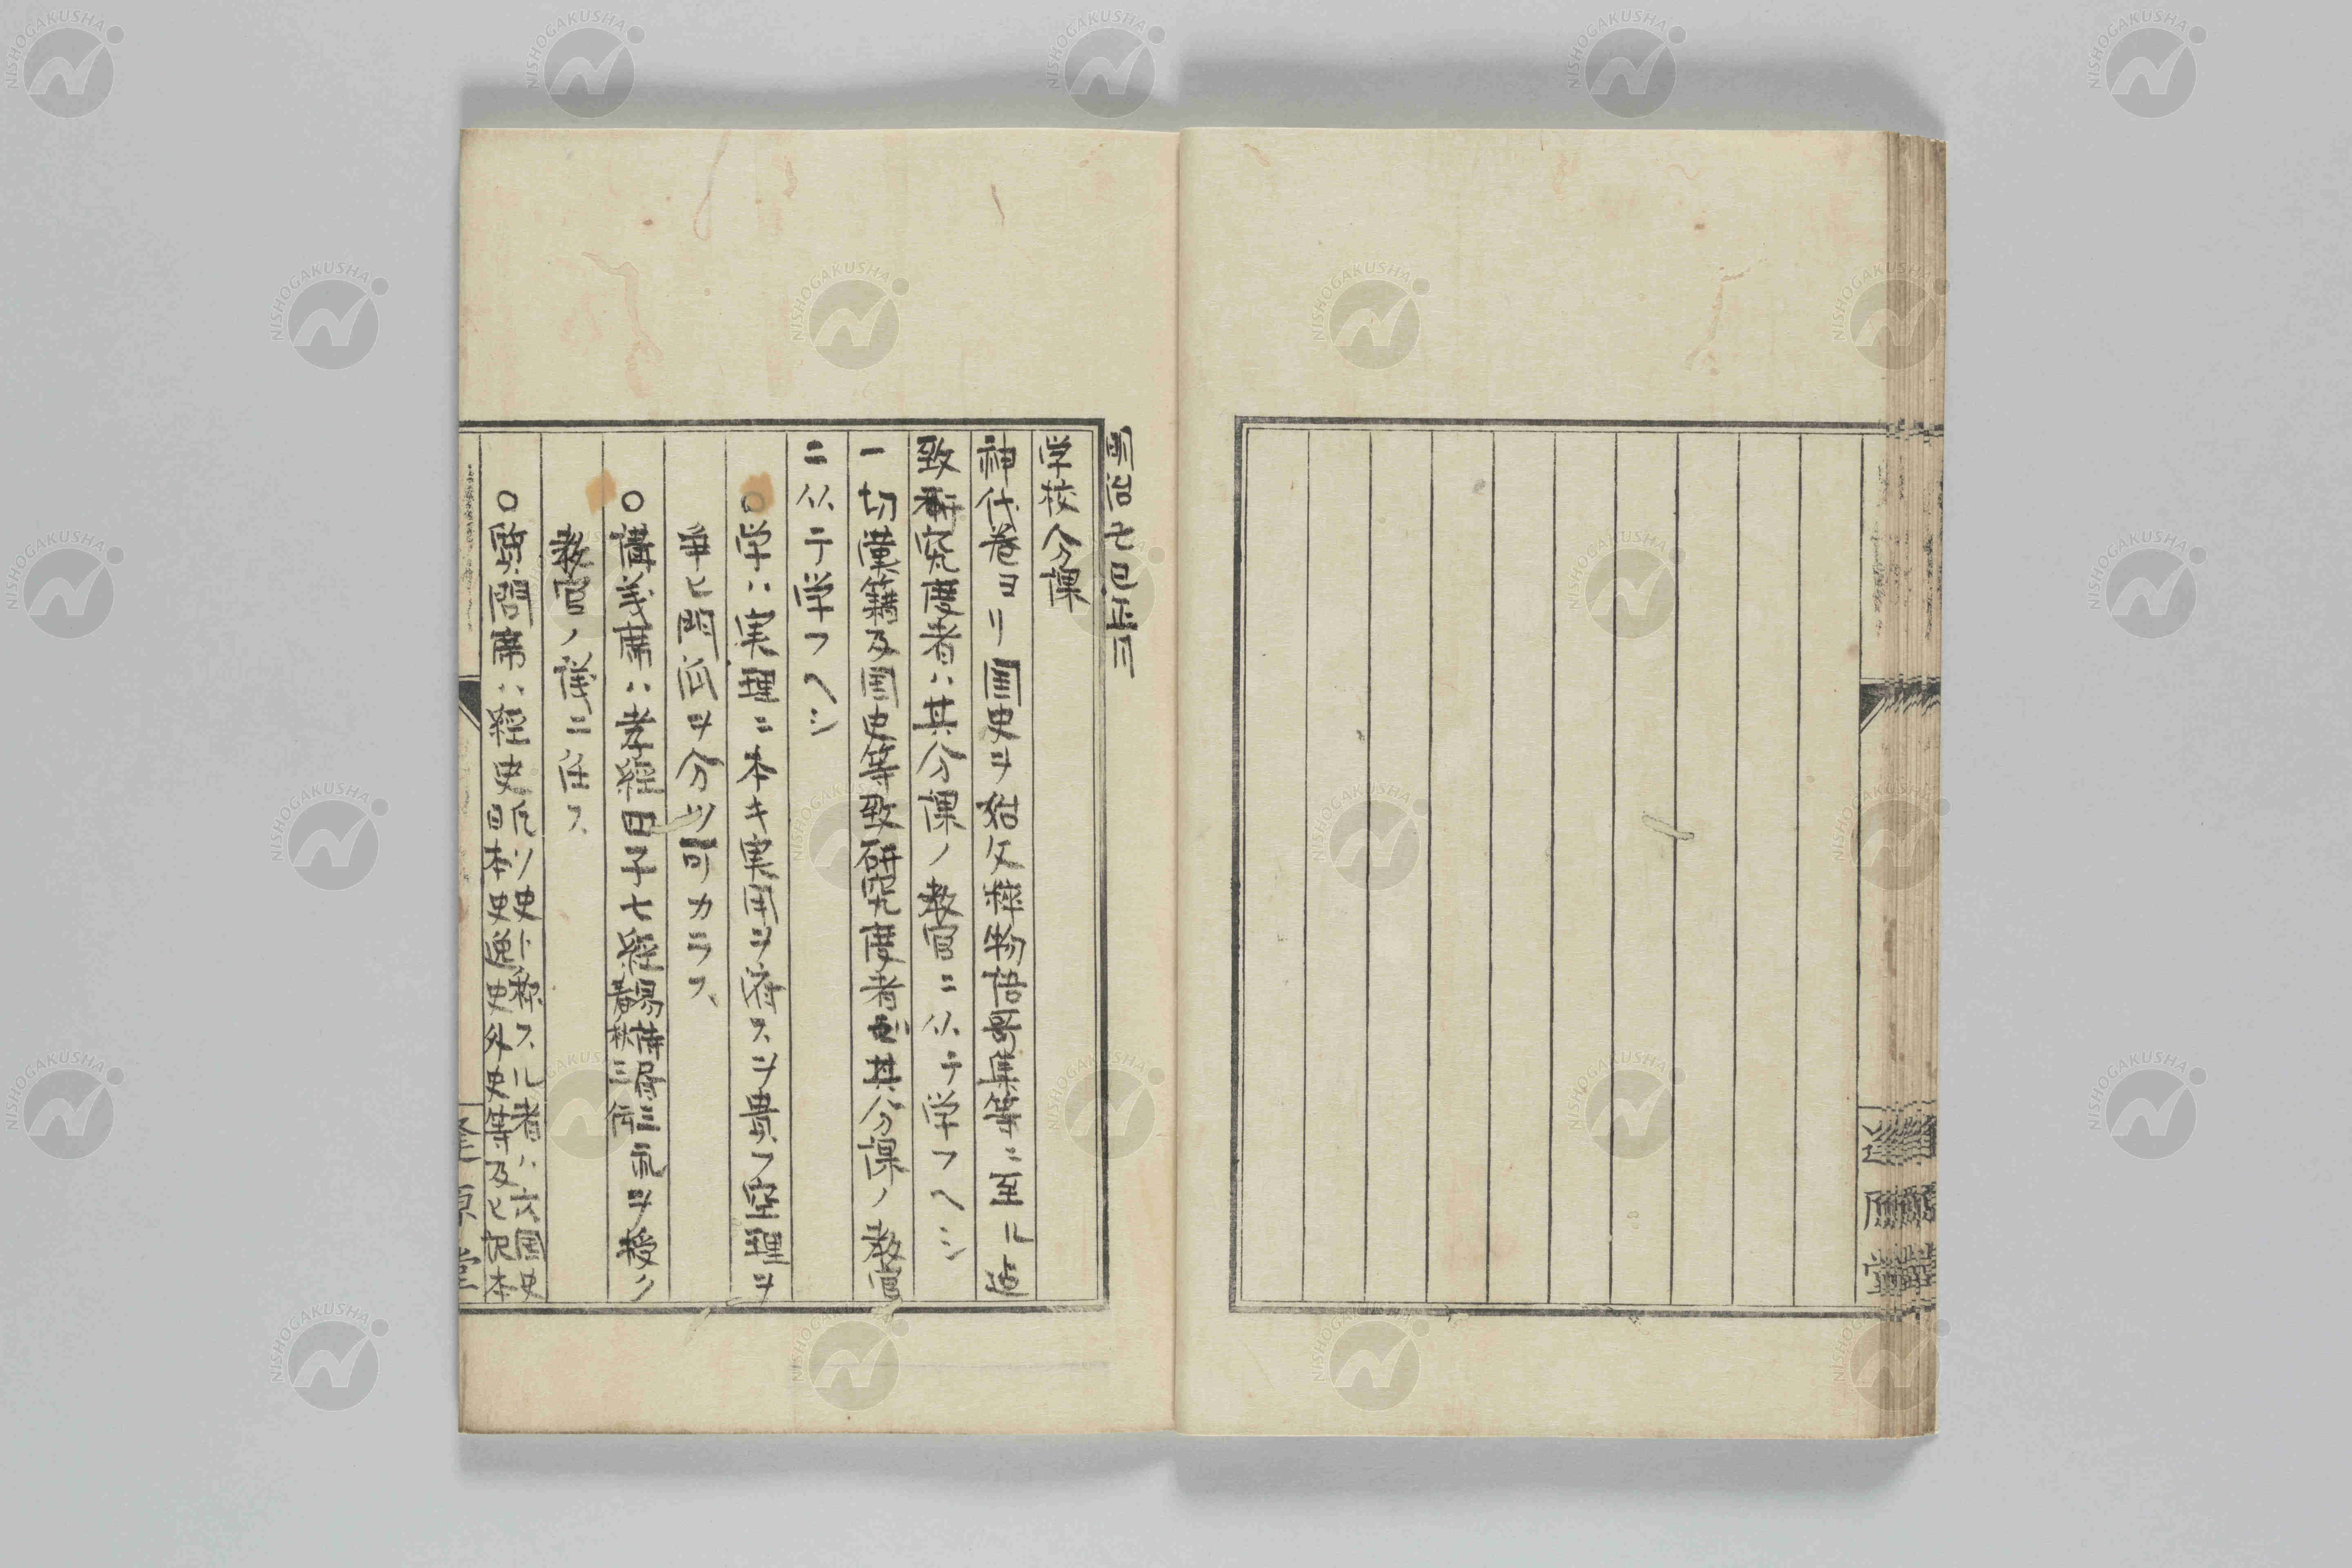 明治二巳正月
学校分課
神代巻ヨリ国史ヲ始文粋物語哥集等ニ至ル迄
致研究度者ハ其分課ノ教官ニ从テ学フヘシ
一切漢籍及国史等致研究度者ハ其分課ノ教官
ニ从テ学フヘシ
○学ハ実理ニ本キ実用ヲ府スヲ貴フ空理ヲ
争ヒ門派ヲ分ツ可カラス
○講義席ハ孝経四子七経易書詩三礼春秋三伝ヲ授ク
教官ノ儀ニ任ス
○質問席ハ経史凡ソ史ト称スル者ハ六国史
日本史逸史外史等及ヒ記本
隆原堂
NISHOGAKUSHA